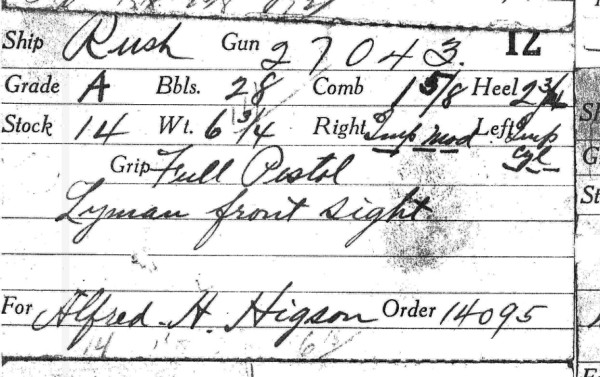 Ship Rush Gun 27043. 12
Grade A Bbls. 28 Comb 1 5/8 Heel 2 3/4
Stock 14 Wt. 6 3/4 Right Imp mod Left Imp cyl
Grip Full Pistol
Lyman front sight
For Alfred. H. Higson Order 14095
14